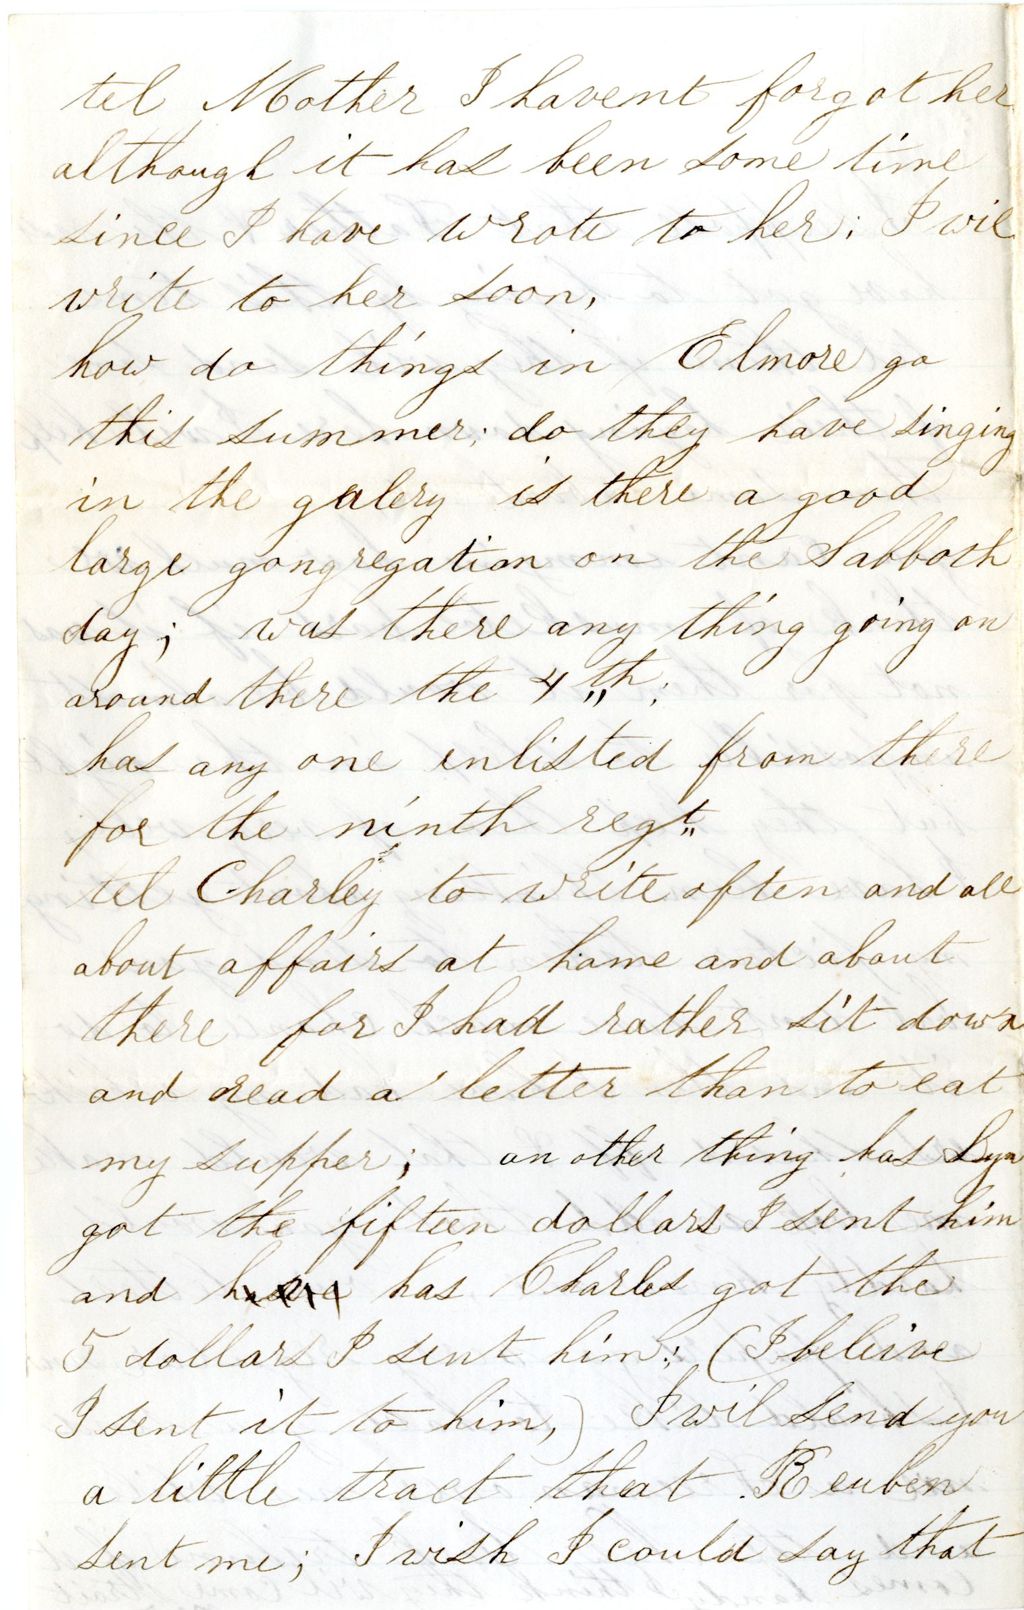 tel Mother I havent forgot her
although it has been some time
since I have wrote to her; I wil
write to her soon,
how do things in Elmore go
this summer; do they have singing
in the galery is there a good
large gongregation on the Sabboth
day; was there any thing going on
around there the 4"th;
has any one enlisted from there
for the ninth regt"
tel Charley to write often and all
about affairs at home and about
there for I had rather sit down
and read a letter than to eat
my supper; another thing has Lyn
got the fifteen dollars I sent him
and have has Charles got the
5 dollars I sent him; (I beleive
I sent it to him,) I wil send you
a little tract that Reuben
sent me; I wish I could say that